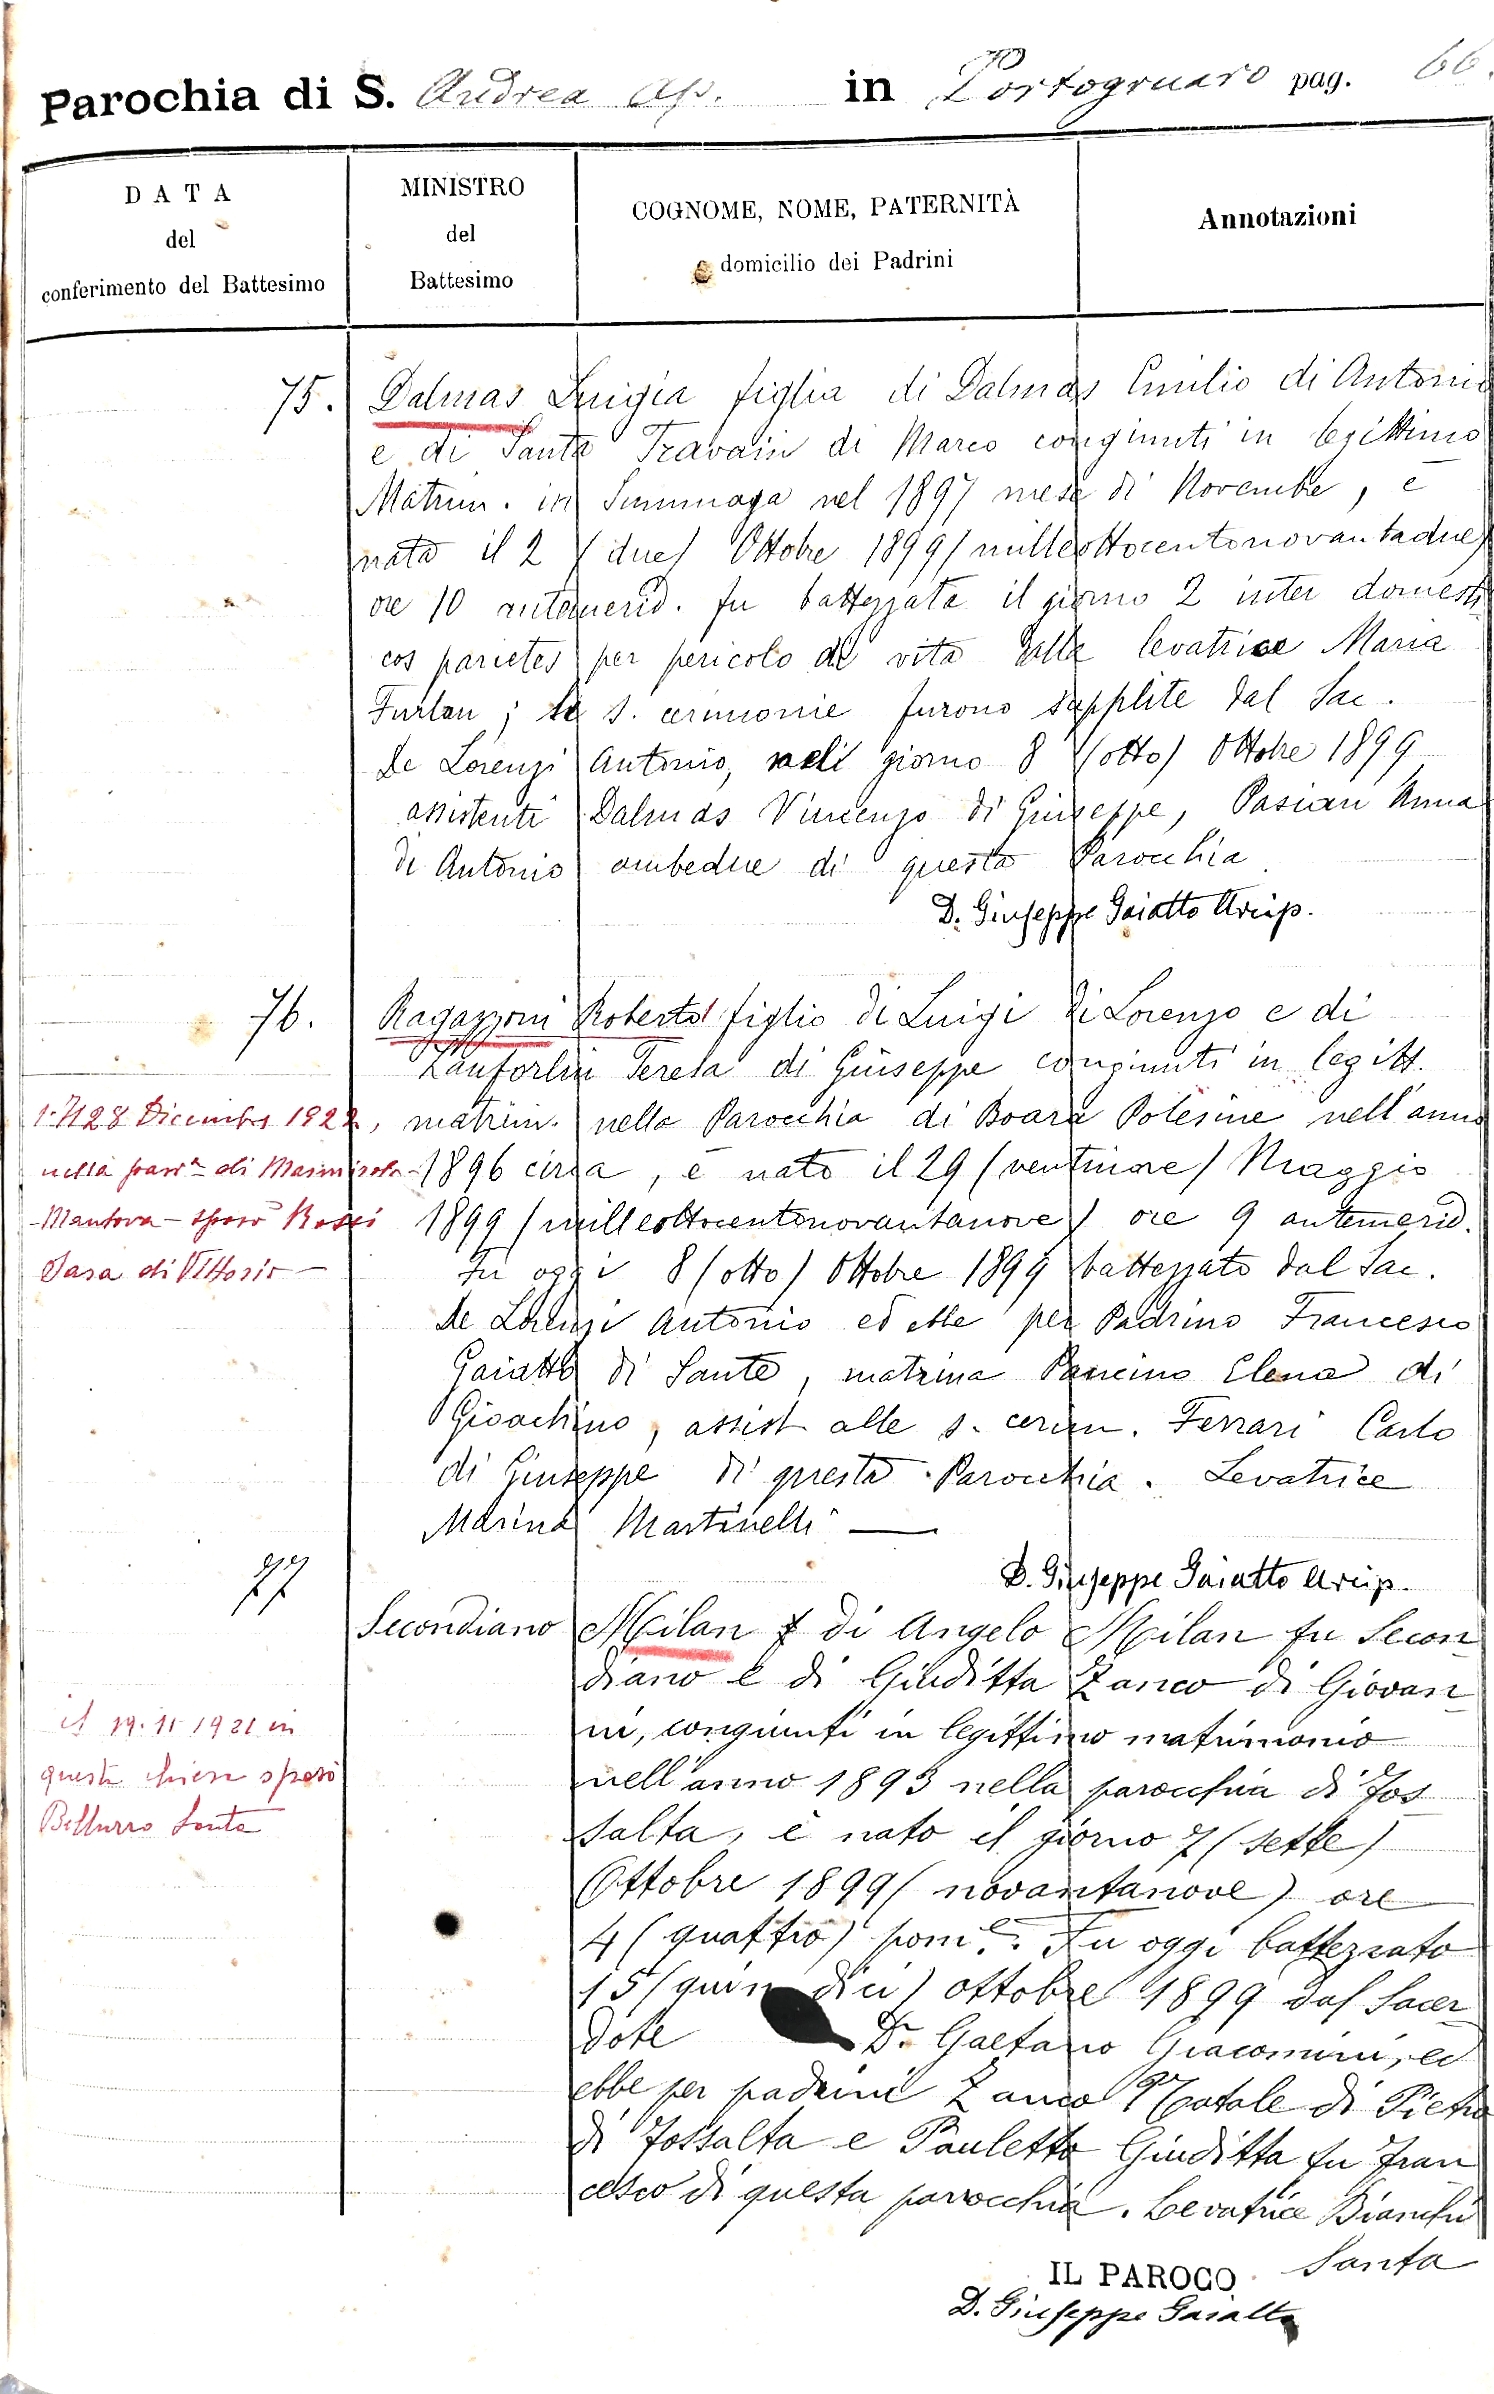 Parochia di S. Andrea Ap. in Portogruaro pag. 66.
DATA
del
conferimento del Battesimo
MINISTRO
del
Battesimo
COGNOME, NOME, PATERNITÀ
e domicilio dei Padrini
Annotazioni
75. Dalmas Luigia figlia di Dalmas Emilio di Antonio
e di Santa Travain di Marco congiunti in legittimo
Matrim. in Summaga nel 1897 mese di Novembre, è
nata il 2 (due) Ottobre 1899 (milleottocentonovantadue)
ore 10 antemerid. fu battezzata il giorno 2 inter domesti
cos parietes per pericolo di vita dalla levatrice Maria
Furlan; le s. cerimonie furono supplite dal Sac.
De Lorenzi Antonio, nell giorno 8 (otto) Ottobre 1899
assistenti Dalmas Vincenzo di Giuseppe, Pasian Anna
di Antonio ambedue di questa Parocchia
D. Giuseppe Gaiatto Arcip.
76. Ragazzoni Roberto figlio di Luigi di Lorenzo e di
Zanforlin Teresa di Giuseppe congiunti in legitt.
matrim. nella Parocchia di Boara Polesine nell'anno
1896 circa, è nato il 29 (ventinove) Maggio
1899 (milleottocentonovantanove) ore 9 antemerid.
Fu oggi 8 (otto) Ottobre 1899 battezzato dal Sac.
De Lorenzi Antonio ed ebbe per Padrino Francesco
Gaiatto di Sante, matrina Pancino Elena di
Gioachino, assist alle s. cerim. Ferrari Carlo
di Giuseppe di questa Parocchia. Levatrice
Marina Martinelli
D. Giuseppe Gaiatto Arcip.
28 Dicembre 1922,
nella parr.a di
Mantova - sposò Rossi
Sara di Vittorio
77 Secondiano Milan di Angelo Milan fu Secon
diano e di Giuditta Zanco di Giovan
ni, congiunti in legittimo matrimonio
nell'anno 1893 nella parocchia di Fos
salta, è nato il giorno 7 (sette)
Ottobre 1899 (novantanove) ore
4 (quattro) pom.e. Fu oggi battezzato
15 (quindici) ottobre 1899 dal Sacer
dote D. Gaetano Giacomini, ed
ebbe per padrini Zanco Natale di Pietro
di Fossalta e Pauletto Giuditta fu Fran
cesco di questa parrocchia. Levatrice Bianchi
Santa
il 19.11 1921 in
questa chiesa sposò
Bellurro Santa
IL PAROCO
D. Giuseppe Gaiatto